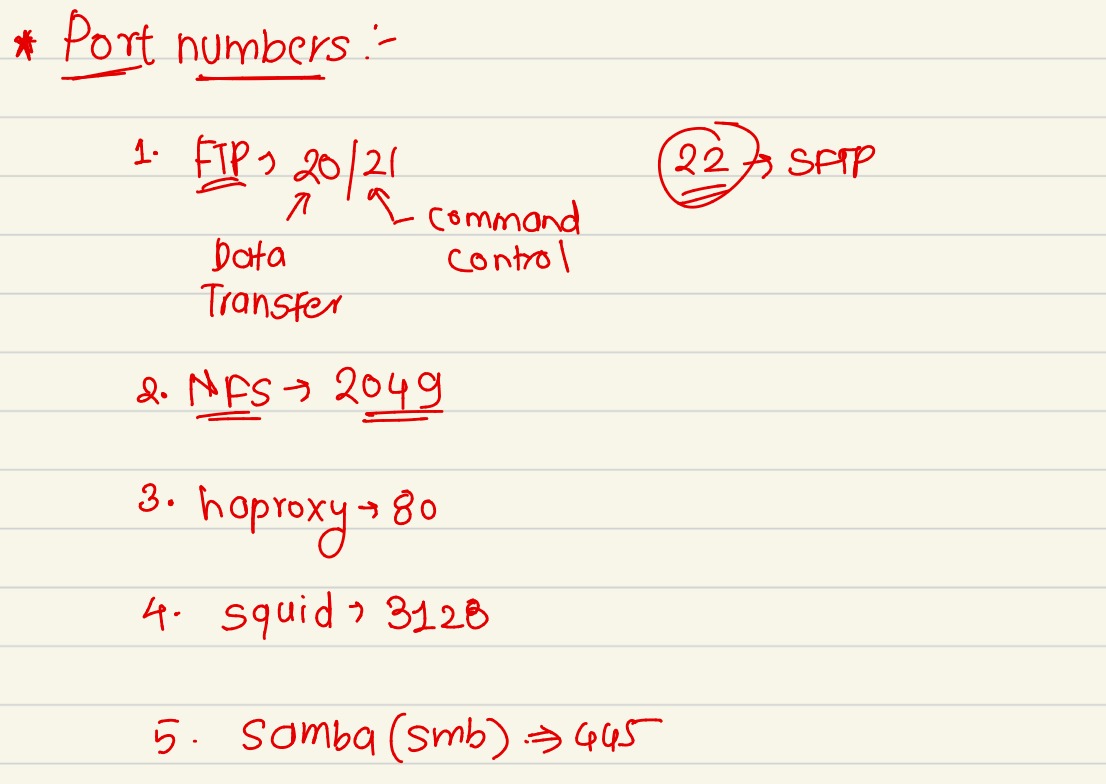 * Port numbers :-
1. FTP → 20/21
22 → SFTP
Data
Transfer
command
control
2. NFS → 2049
3. haproxy → 80
4. squid → 3128
5. Samba (smb) ⇒ 445